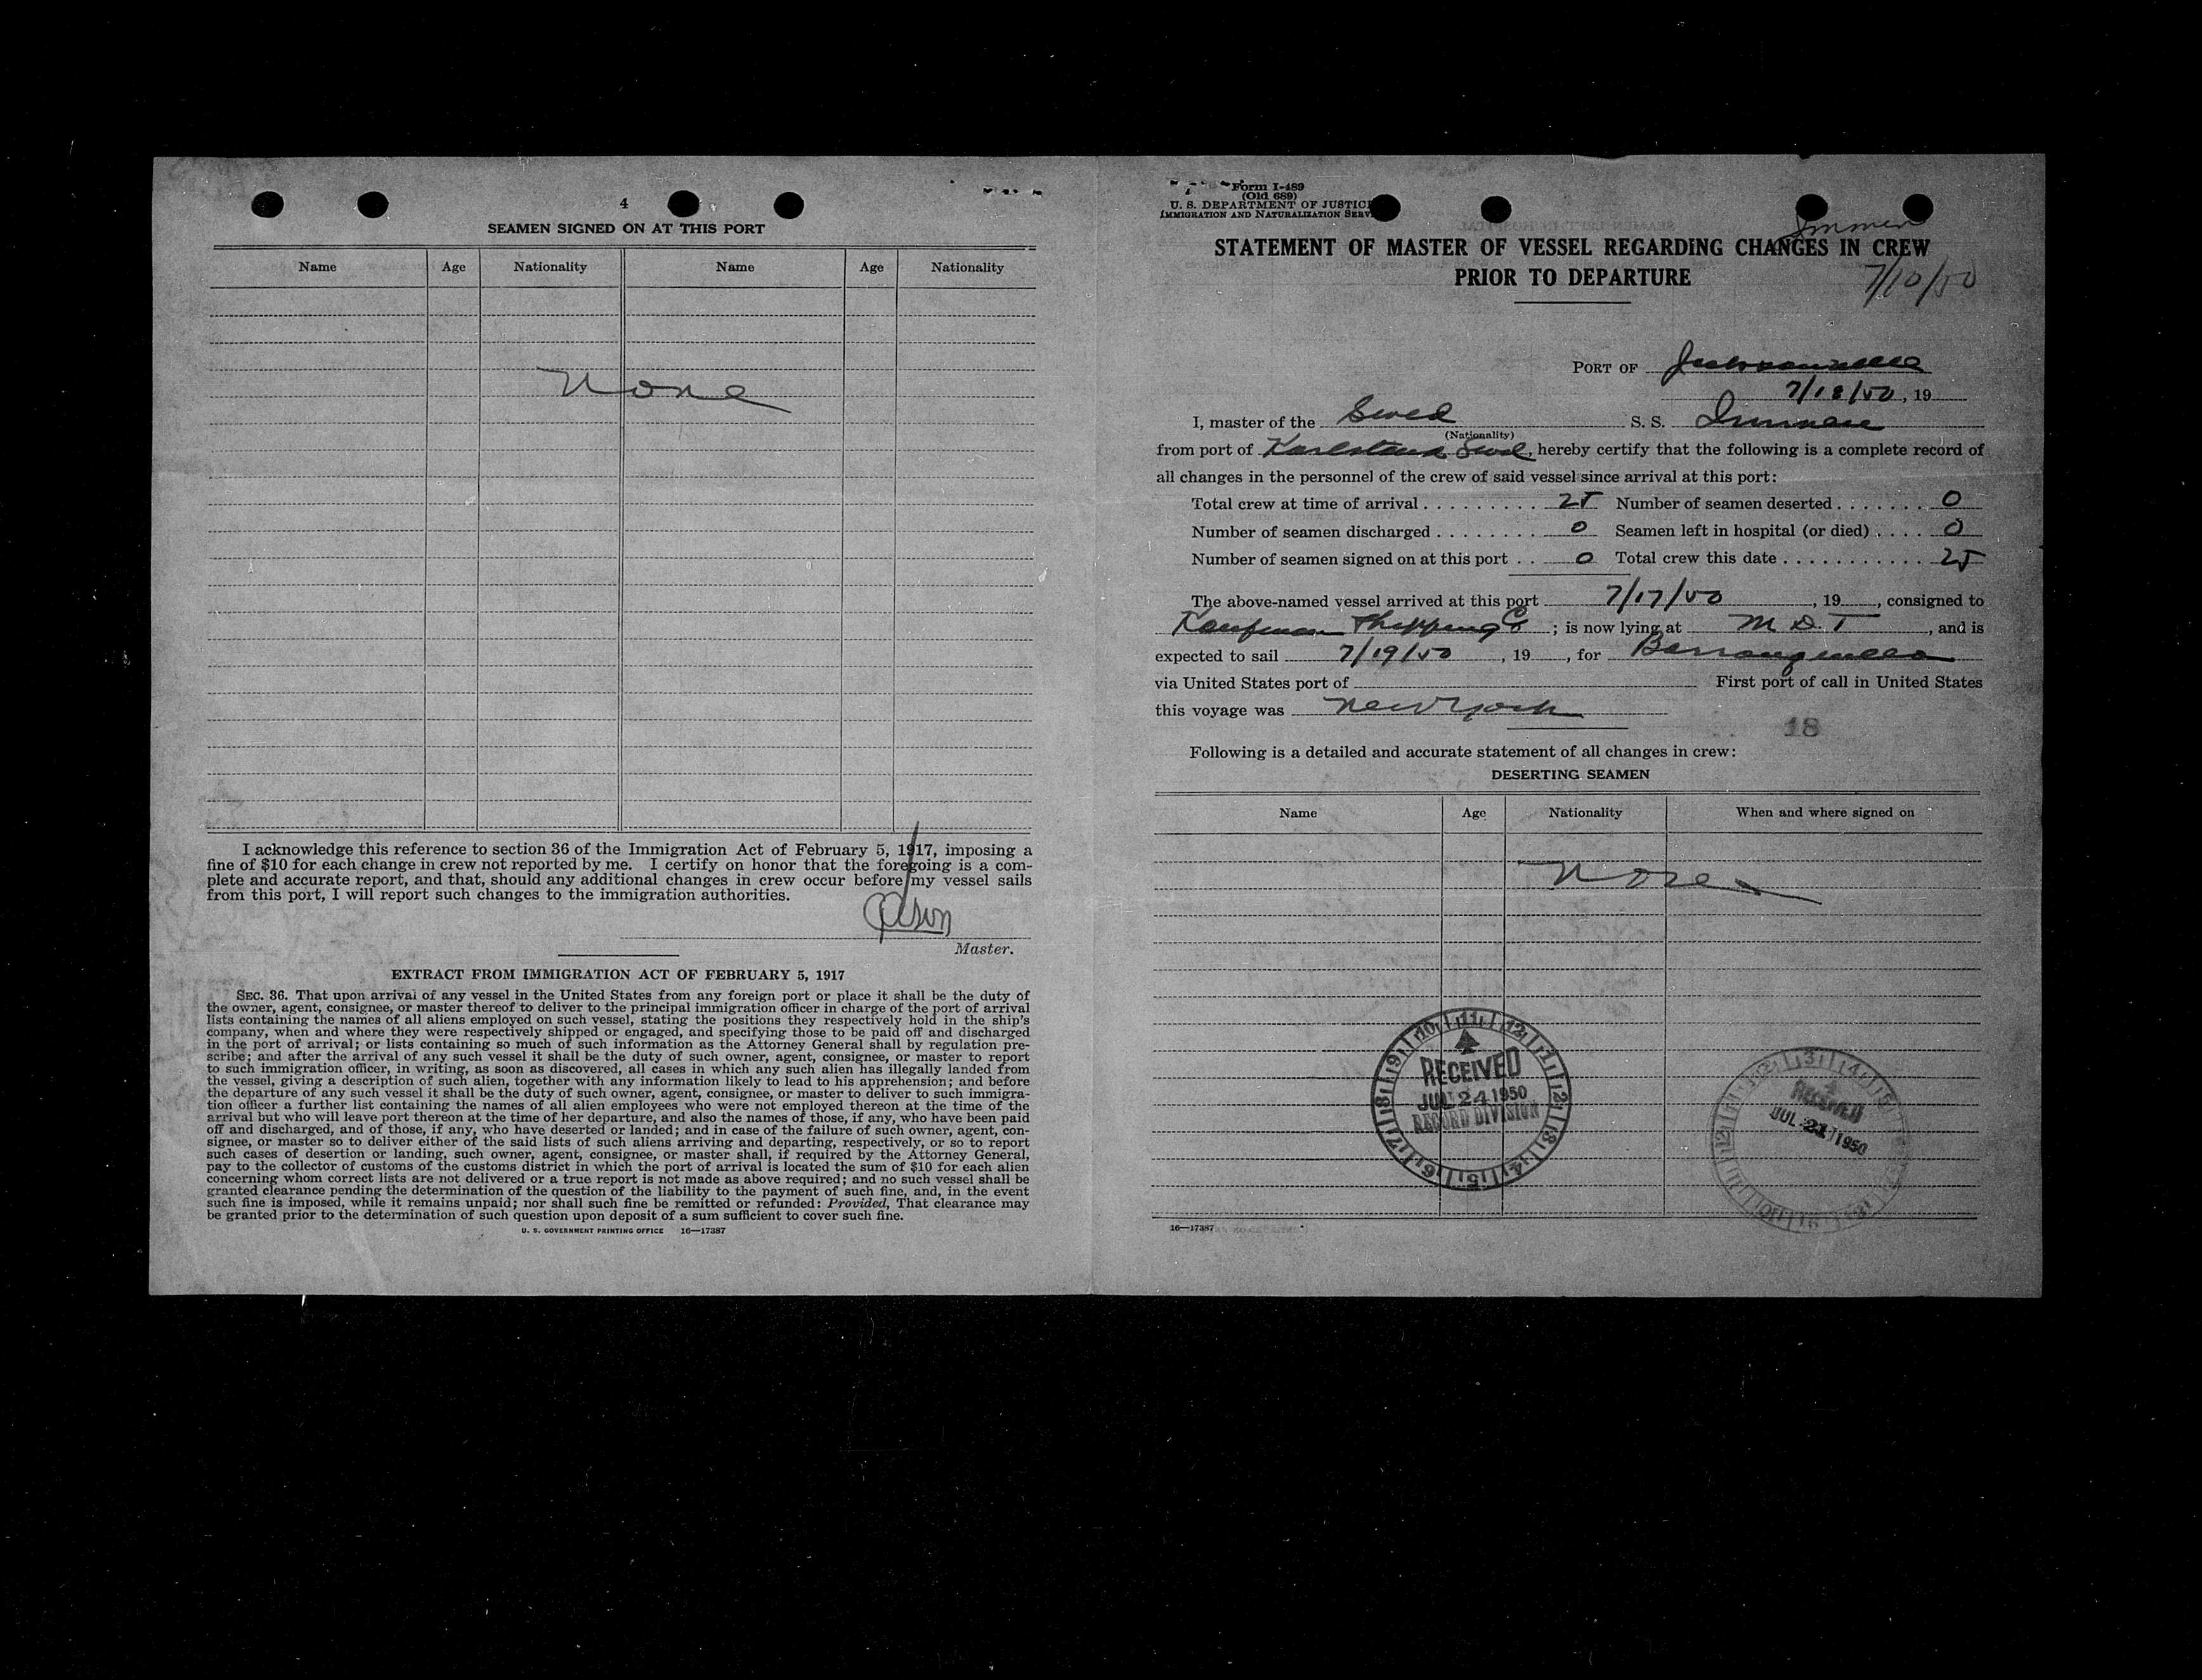 4
SEAMEN SIGNED ON AT THIS PORT
Name Age Nationality Name Age Nationality
None
I acknowledge this reference to section 36 of the Immigration Act of February 5, 1917, imposing a
fine of $10 for each change in crew not reported by me. I certify on honor that the foregoing is a com-
plete and accurate report, and that, should any additional changes in crew occur before my vessel sails
from this port, I will report such changes to the immigration authorities.
Master.
EXTRACT FROM IMMIGRATION ACT OF FEBRUARY 5, 1917
SEC. 36. That upon arrival of any vessel in the United States from any foreign port or place it shall be the duty of
the owner, agent, consignee, or master thereof to deliver to the principal immigration officer in charge of the port of arrival
lists containing the names of all aliens employed on such vessel, stating the positions they respectively hold in the ship's
company, when and where they were respectively shipped or engaged, and specifying those to be paid off and discharged
in the port of arrival; or lists containing so much of such information as the Attorney General shall by regulation pre-
scribe; and after the arrival of any such vessel it shall be the duty of such owner, agent, consignee, or master to report
to such immigration officer, in writing, as soon as discovered, all cases in which any such alien has illegally landed from
the vessel, giving a description of such alien, together with any information likely to lead to his apprehension; and before
the departure of any such vessel it shall be the duty of such owner, agent, consignee, or master to deliver to such immigra-
tion officer a further list containing the names of all alien employees who were not employed thereon at the time of the
arrival but who will leave port thereon at the time of her departure, and also the names of those, if any, who have been paid
off and discharged, and of those, if any, who have deserted or landed; and in case of the failure of such owner, agent, con-
signee, or master so to deliver either of the said lists of such aliens arriving and departing, respectively, or so to report
such cases of desertion or landing, such owner, agent, consignee, or master shall, if required by the Attorney General,
pay to the collector of customs of the customs district in which the port of arrival is located the sum of $10 for each alien
concerning whom correct lists are not delivered or a true report is not made as above required; and no such vessel shall be
granted clearance pending the determination of the question of the liability to the payment of such fine, and, in the event
such fine is imposed, while it remains unpaid; nor shall such fine be remitted or refunded: Provided, That clearance may
be granted prior to the determination of such question upon deposit of a sum sufficient to cover such fine.
U. S. GOVERNMENT PRINTING OFFICE 16—17387
Form I-489
(Old 689)
U. S. DEPARTMENT OF JUSTICE
IMMIGRATION AND NATURALIZATION SERV
Immen
STATEMENT OF MASTER OF VESSEL REGARDING CHANGES IN CREW
PRIOR TO DEPARTURE
7/10/50
PORT OF Jacksonville
7/18/50, 19
I, master of the Swed S. S. Immen
(Nationality)
from port of Karlstad Swed, hereby certify that the following is a complete record of
all changes in the personnel of the crew of said vessel since arrival at this port:
Total crew at time of arrival . . . . . . . . . . 25 Number of seamen deserted . . . . . . . 0
Number of seamen discharged . . . . . . . . 0 Seamen left in hospital (or died) . . . . 0
Number of seamen signed on at this port . . 0 Total crew this date . . . . . . . . . . . . 25
The above-named vessel arrived at this port 7/17/50, 19 , consigned to
Kaufman Shipping Co ; is now lying at M D. T , and is
expected to sail 7/19/50, 19 , for Barranquilla
via United States port of First port of call in United States
this voyage was New York
18
Following is a detailed and accurate statement of all changes in crew:
DESERTING SEAMEN
Name Age Nationality When and where signed on
None
RECEIVED
JUL 24 1950
RECORD DIVISION
RECEIVED
JUL 21 1950
16—17387